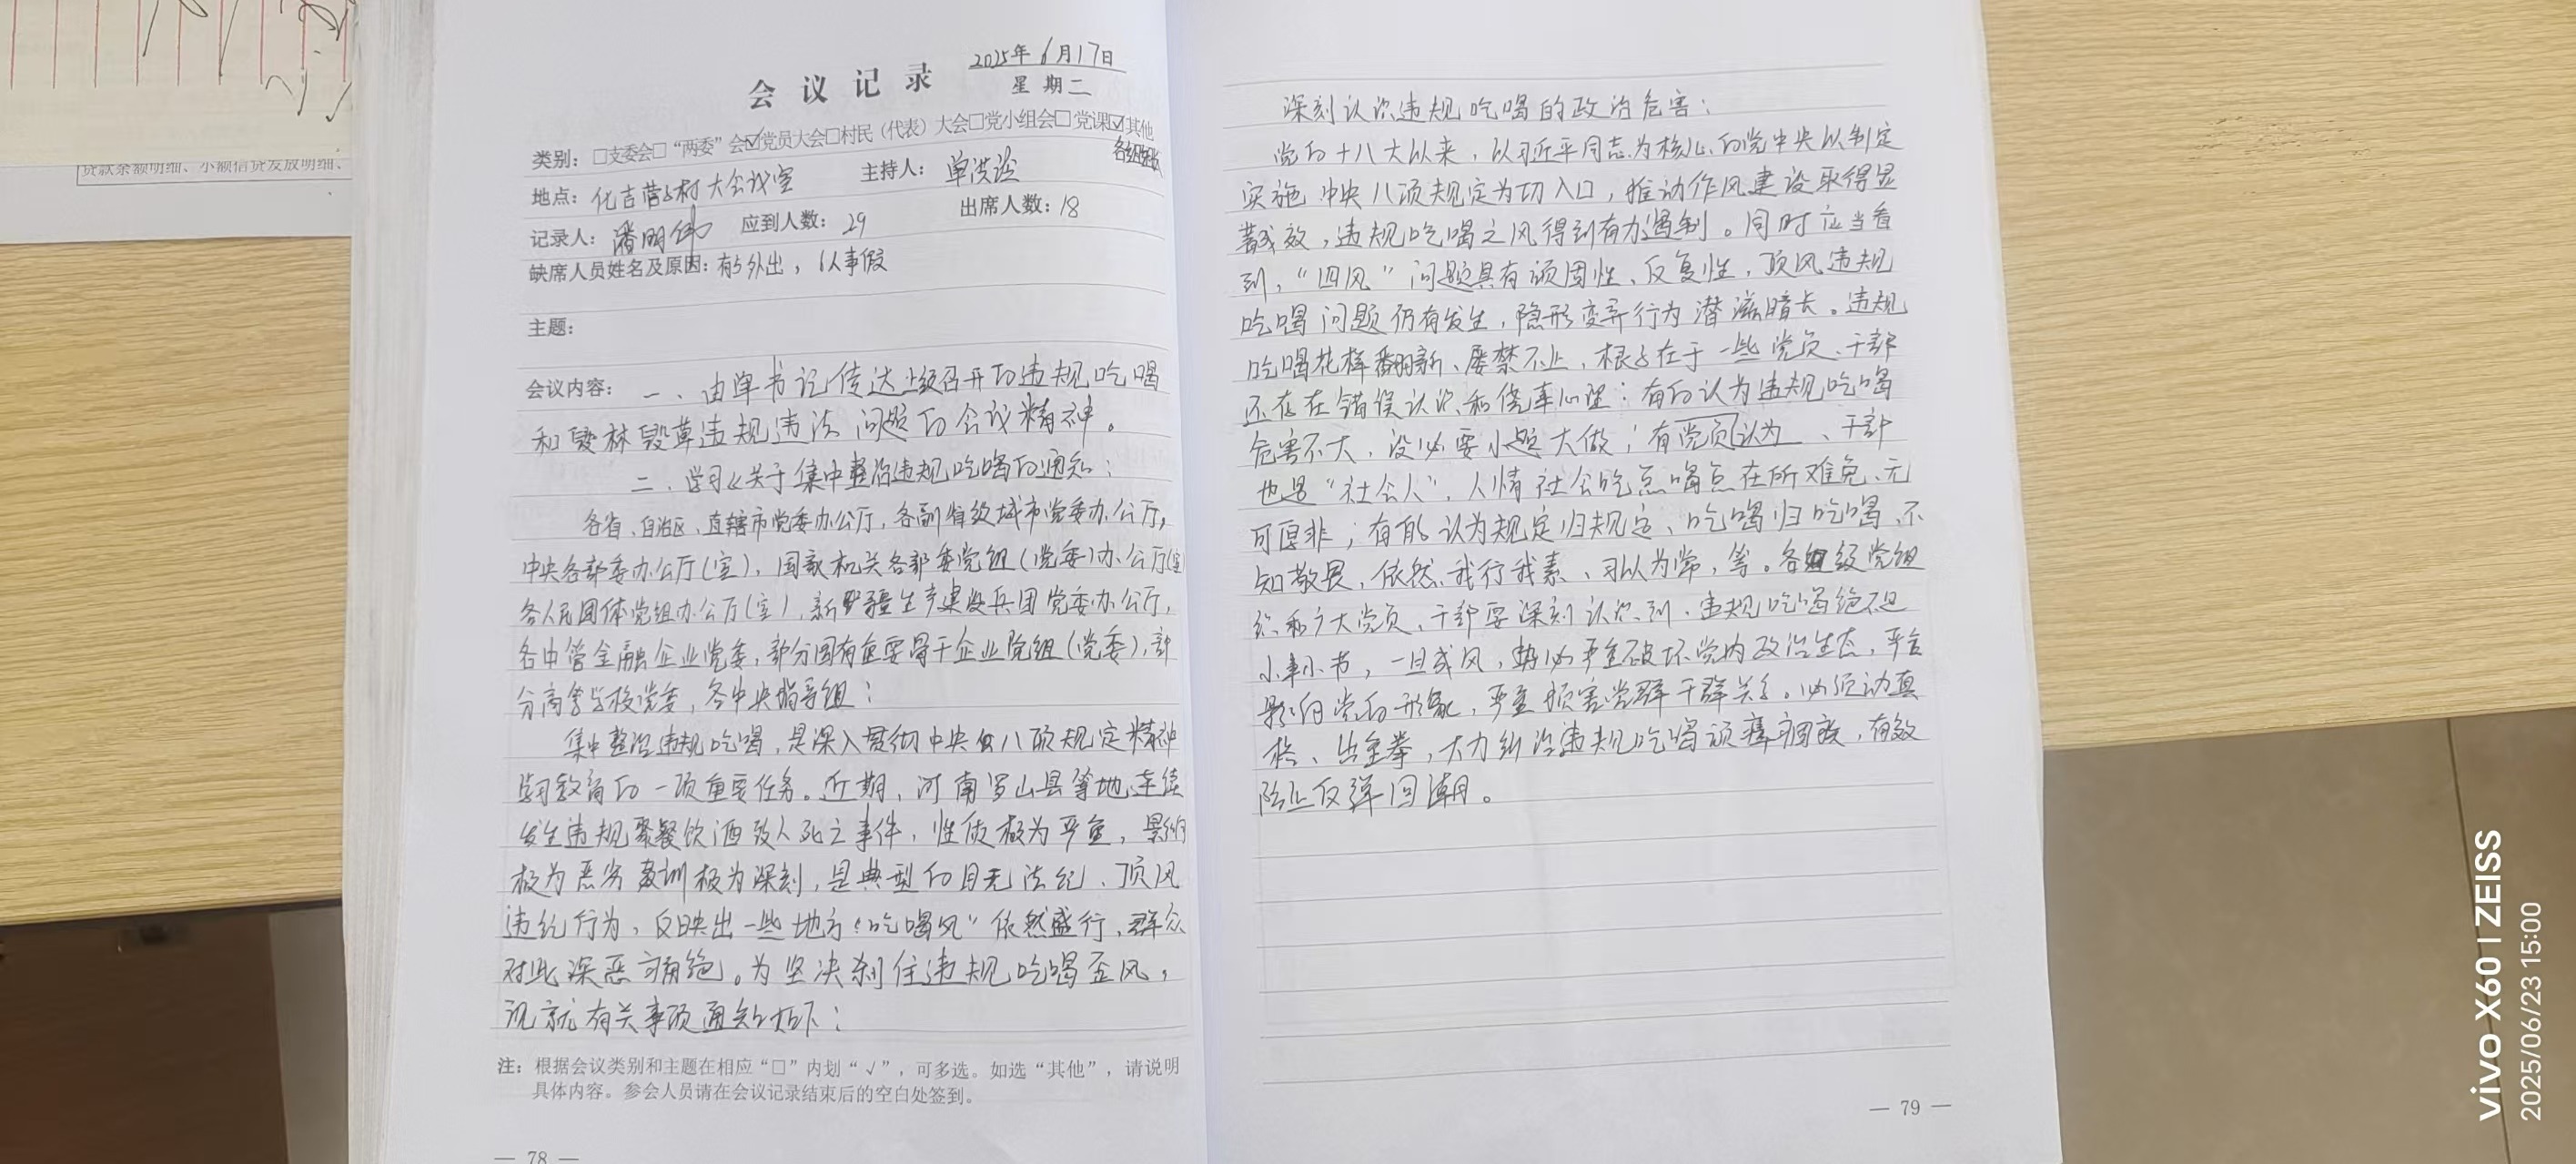 贷款余额明细、小额信贷发放明细、
会议记录
2025年6月17日
星期二
类别：□支委会□“两委”会☑党员大会□村民（代表）大会□党小组会□党课☑其他
各组组长
地点：化吉营子村大会议室 主持人：单洪
记录人：潘明伟 应到人数：29 出席人数：18
缺席人员姓名及原因：有5外出，1人事假
主题：
会议内容：一、由单书记传达上级召开的违规吃喝
和毁林毁草违规违法问题的会议精神。
二、学习《关于集中整治违规吃喝的通知：
各省、自治区、直辖市党委办公厅，各副省级城市党委办公厅，
中央各部委办公厅(室)，国家机关各部委党组(党委)办公厅(室)
各人民团体党组办公厅(室)，新疆生产建设兵团党委办公厅，
各中管金融企业党委，部分国有重要骨干企业党组(党委)，部
分高等学校党委，各中央指导组：
集中整治违规吃喝，是深入贯彻中央八项规定精神
学习教育的一项重要任务。近期，河南罗山县等地连续
发生违规聚餐饮酒致人死亡事件，性质极为严重，影响
极为恶劣教训极为深刻，是典型的目无法纪、顶风
违纪行为，反映出一些地方“吃喝风”依然盛行，群众
对此深恶痛绝。为坚决刹住违规吃喝歪风，
现就有关事项通知如下：
注：根据会议类别和主题在相应“□”内划“√”，可多选。如选“其他”，请说明
具体内容。参会人员请在会议记录结束后的空白处签到。
— 78 —
深刻认识违规吃喝的政治危害：
党的十八大以来，以习近平同志为核心的党中央以制定
实施中央八项规定为切入口，推动作风建设取得显
著成效，违规吃喝之风得到有力遏制。同时应当看
到，“四风”问题具有顽固性、反复性，顶风违规
吃喝问题仍有发生，隐形变异行为潜滋暗长。违规
吃喝花样翻新、屡禁不止，根子在于一些党员、干部
还存在错误认识和侥幸心理：有的认为违规吃喝
危害不大，没必要小题大做；有党员认为、干部
也是“社会人”，人情社会吃点喝点在所难免、无
可厚非；有的认为规定归规定、吃喝归吃喝、不
知敬畏，依然我行我素、习以为常，等。各级党组
织和广大党员、干部要深刻认识到，违规吃喝绝不是
小事小节，一旦成风，势必严重破坏党内政治生态，严重
影响党的形象，严重损害党群干群关系。必须动真
格、出重拳，大力纠治违规吃喝顽瘴痼疾，有效
防止反弹回潮。
— 79 —
vivo X60 | ZEISS
2025/06/23 15:00